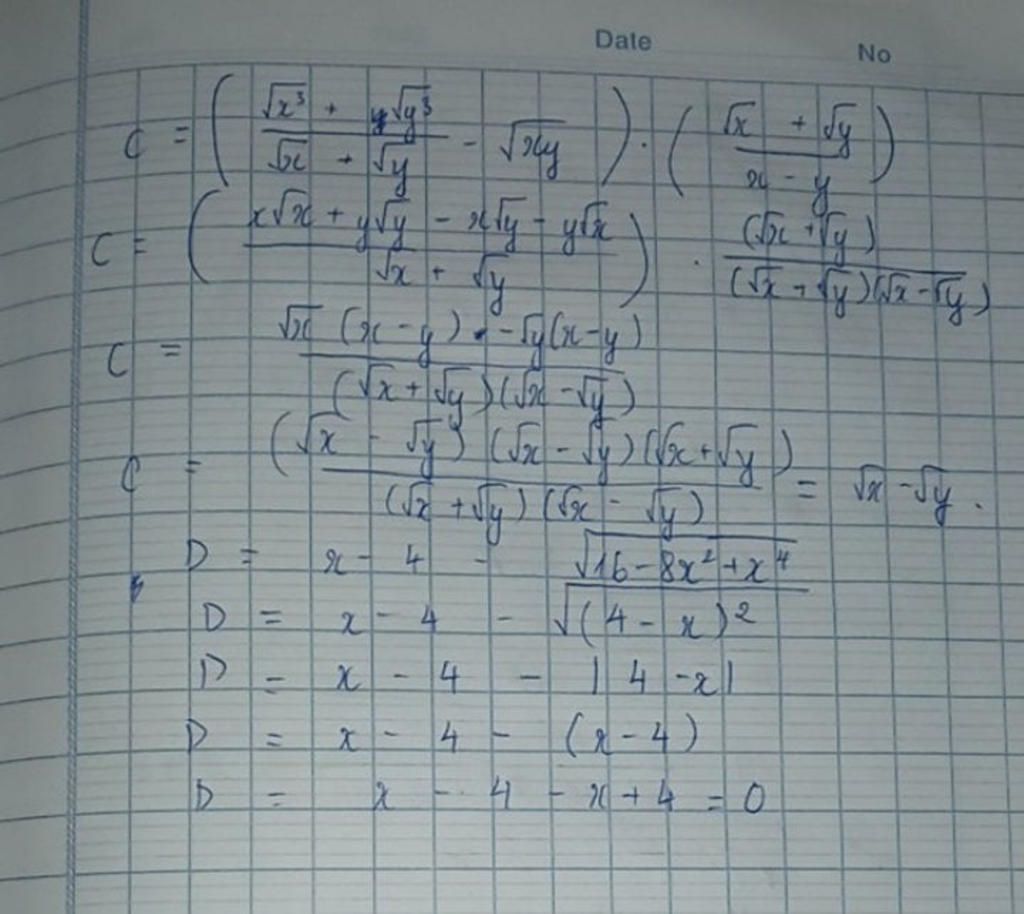 Date No
C = ( (√x³ + y√y³)/(√x + √y) - √xy ) . ( (√x + √y)/(x - y) )
C = ( (x√x + y√y - x√y - y√x)/(√x + √y) ) . (√x + √y)/((√x + √y)(√x - √y))
C = (√x (x - y) - √y(x - y))/((√x + √y)(√x - √y))
C = ((√x - √y)(√x - √y)(√x + √y))/((√x + √y)(√x - √y)) = √x - √y.
D = x - 4 - √16 - 8x² + x⁴
D = x - 4 - √(4 - x)²
D = x - 4 - |4 - x|
D = x - 4 - (x - 4)
D = x - 4 - x + 4 = 0